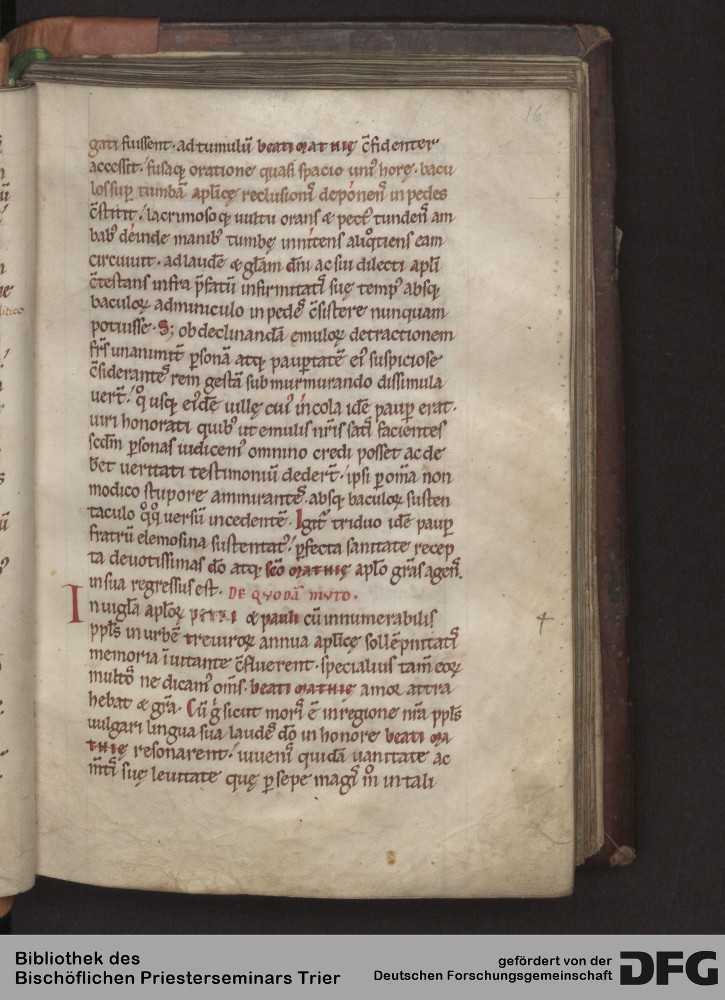 16
gati fuissent· ad tumulū beati mathię c̄fidenter
accessit· fusaq; oratione quasi spacio uni᾽ horę· bacu
los sup̱ tumbā apl̄icę reclusionis̄ deponens̄ in pedes
c̄stitit· lacrimosoq; uultu orans & pect᾽ tundens̄ am
bab᾽ deinde manib᾽ tumbę innitens aliqͦtiens eam
circuiuit· ad laudē & gl̄am dn̄i ac sui dilecti apl̄i
c̄testans infra p̄fatū infirmitatis̄ suę temp᾽ absq;
baculoꝝ adminiculo in pedes̄ c̄sistere nunquam
potuisse· S; ob declinandā emuloꝝ detractionem
fr̄s unanimit̄ ꝑsonā atq; pauꝑtatē ei᾽ suspiciose
c̄siderantes̄ rem gestā sub murmurando dissimula
uert̄· qͦ usq; ei᾽dē uillę cui᾽ incola idē pauꝑ erat·
uiri honorati quib᾽ ut emulis nr̄is satis̄ facientes
scdm̄ ꝑsonas iudicem᾽ omnino credi posset ac de
b̄et ueritati testimoniū dedert̄· ipsi ꝑ om̄a non
modico stupore ammirantes̄· absq; baculoꝝ susten
taculo qͦqͦ uersū incedentē· Igit᾽ triduo idē pauꝑ
fratrū elemosina sustentat᾽· ꝑfecta sanitate recep
ta deuotissimas dō atq; sc̄o mathię apl̄o gr̄as agens̄·
in sua regressus est· DE QVODĀ MVTO·
In uigl̄a apl̄oꝝ petri & pauli cū innumerabilis
ppl̄s in urbē treuiroꝝ annua apl̄icę sollēpnitatis̄
memoria īuitante c̄fluerent· specialius tam̄ eoꝝ
multos̄ ne dicam᾽ om̄s· beati mathię amor attra
hebat & gr̄a· Cū g̊ sicut moris̄ ē in regione nr̄a ppl̄s
uulgari lingua sua laudes̄ dō in honore beati ma
thię resonarent· iuuenis̄ quidā uanitate ac
m̄tis̄ suę leuitate quę ꝑsepe magis̄ in tali
4
Bibliothek des
Bischöflichen Priesterseminars Trier
gefördert von der
Deutschen Forschungsgemeinschaft
DFG